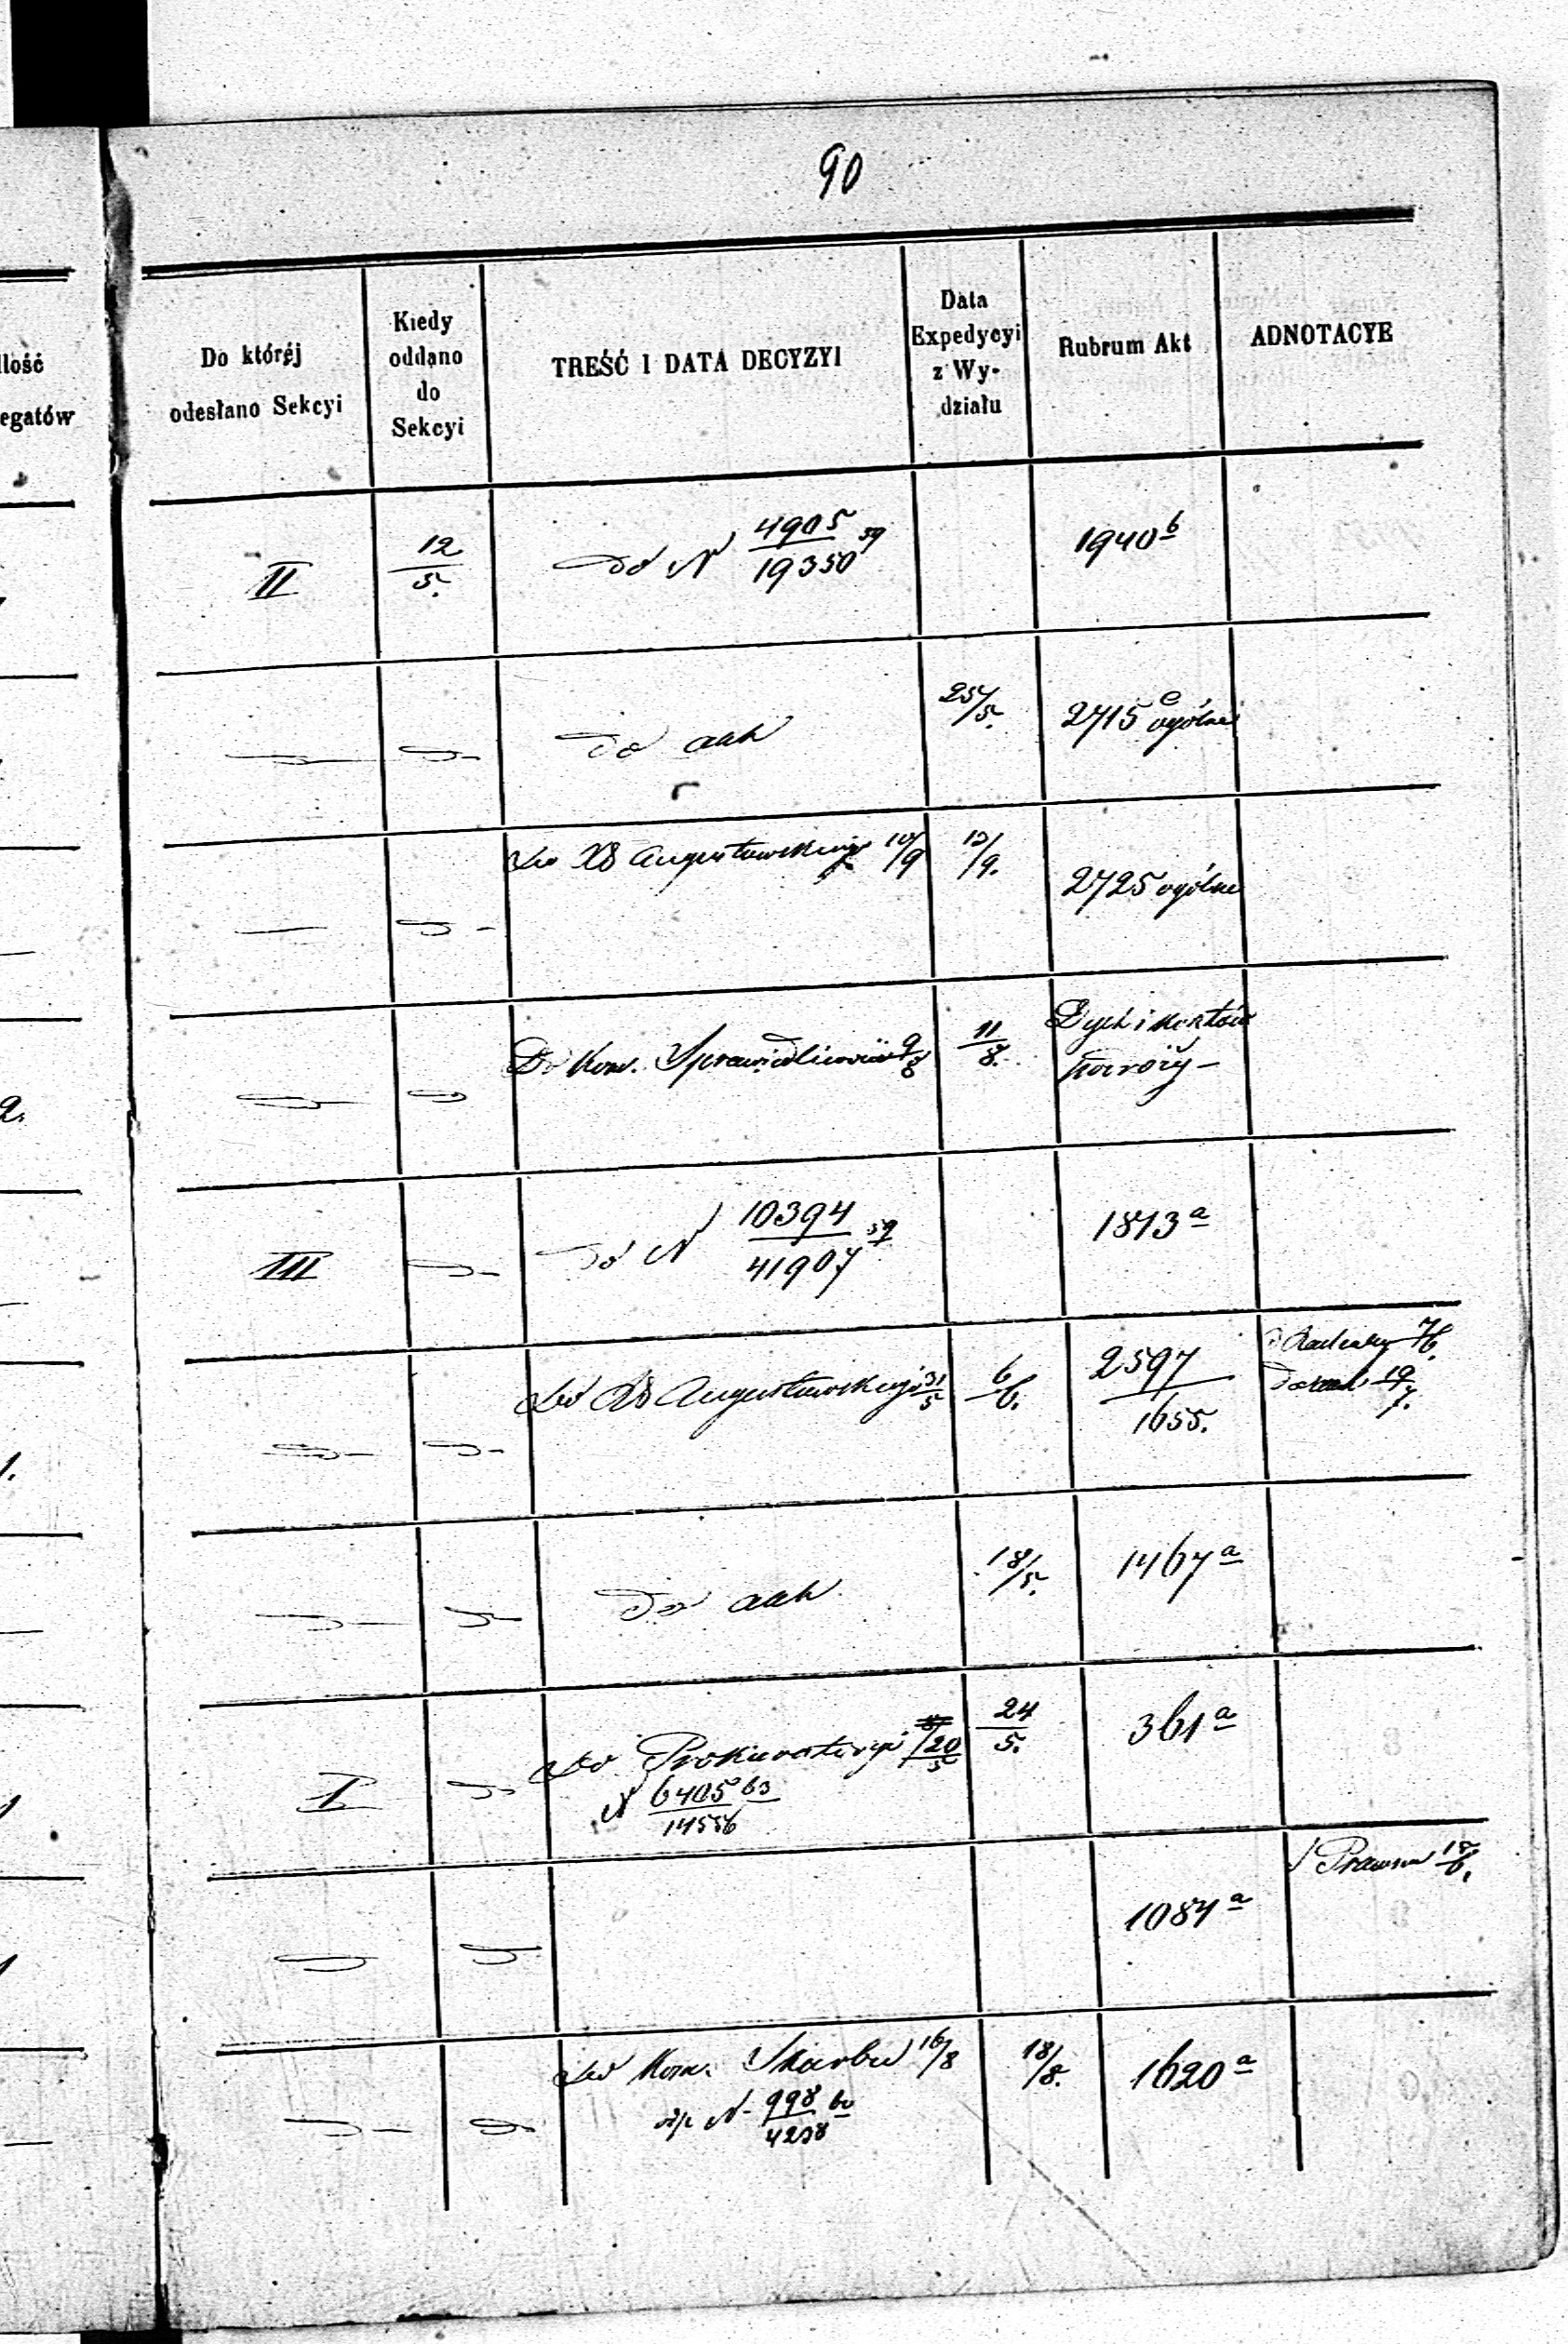 90
Ilość
egatów
Do któréj
odesłano Sekcyi
Kiedy
oddano
do
Sekcyi
TREŚĆ I DATA DECYZYI
Data
Expedycyi
z Wy-
działu
Rubrum Akt
ADNOTACYE
II 12/5. do N 4905/19350 59 1940 b
do akt 25/5. 2715 e ogólne
do RG Augustowskiego 10/9 12/9. 2725 ogólne
Do Kom. Sprawiedliwości 9/8 11/8.
III do N 10394/41907 59 1873 a
do RG Augustowskiego 31/5 6/6. 2597/1655. 7/6.
19/7.
do akt 18/5. 1467 a
I do Prokuratoryi 20/5 24/5. 361 a
N 6405/14556 63
1084 a Prawna 18/6.
do Kom. Skarbu 16/8 18/8. 1620 a
N 998/4238 60